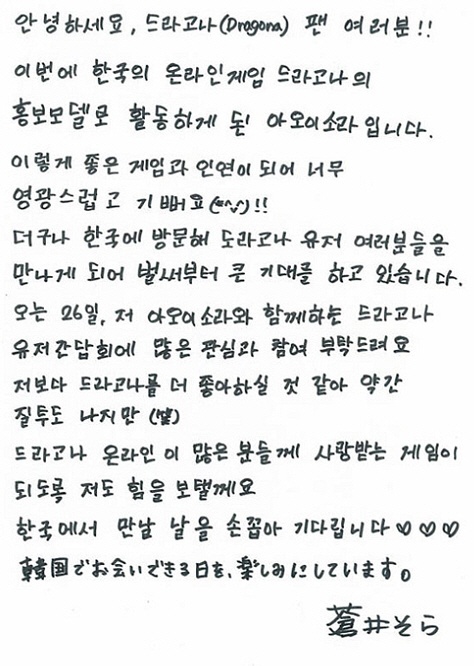 안녕하세요, 드라고나(Dragona) 팬 여러분!!
이번에 한국의 온라인게임 드라고나의
홍보모델로 활동하게 된 아오이소라입니다.
이렇게 좋은 게임과 인연이 되어 너무
영광스럽고 기뻐요(=^^)!!
더구나 한국에 방문해 도라고나 유저 여러분들을
만나게 되어 벌써부터 큰 기대를 하고 있습니다.
오는 26일, 저 아오이소라와 함께하는 드라고나
유저간담회에 많은 관심과 참여 부탁드려요
저보다 드라고나를 더 좋아하실 것 같아 약간
질투도 나지만 (笑)
드라고나 온라인이 많은 분들께 사랑받는 게임이
되도록 저도 힘을 보탤께요
한국에서 만날 날을 손꼽아 기다립니다♡♡♡
韓国でお会いできる日を、楽しみにしています。
蒼井そら